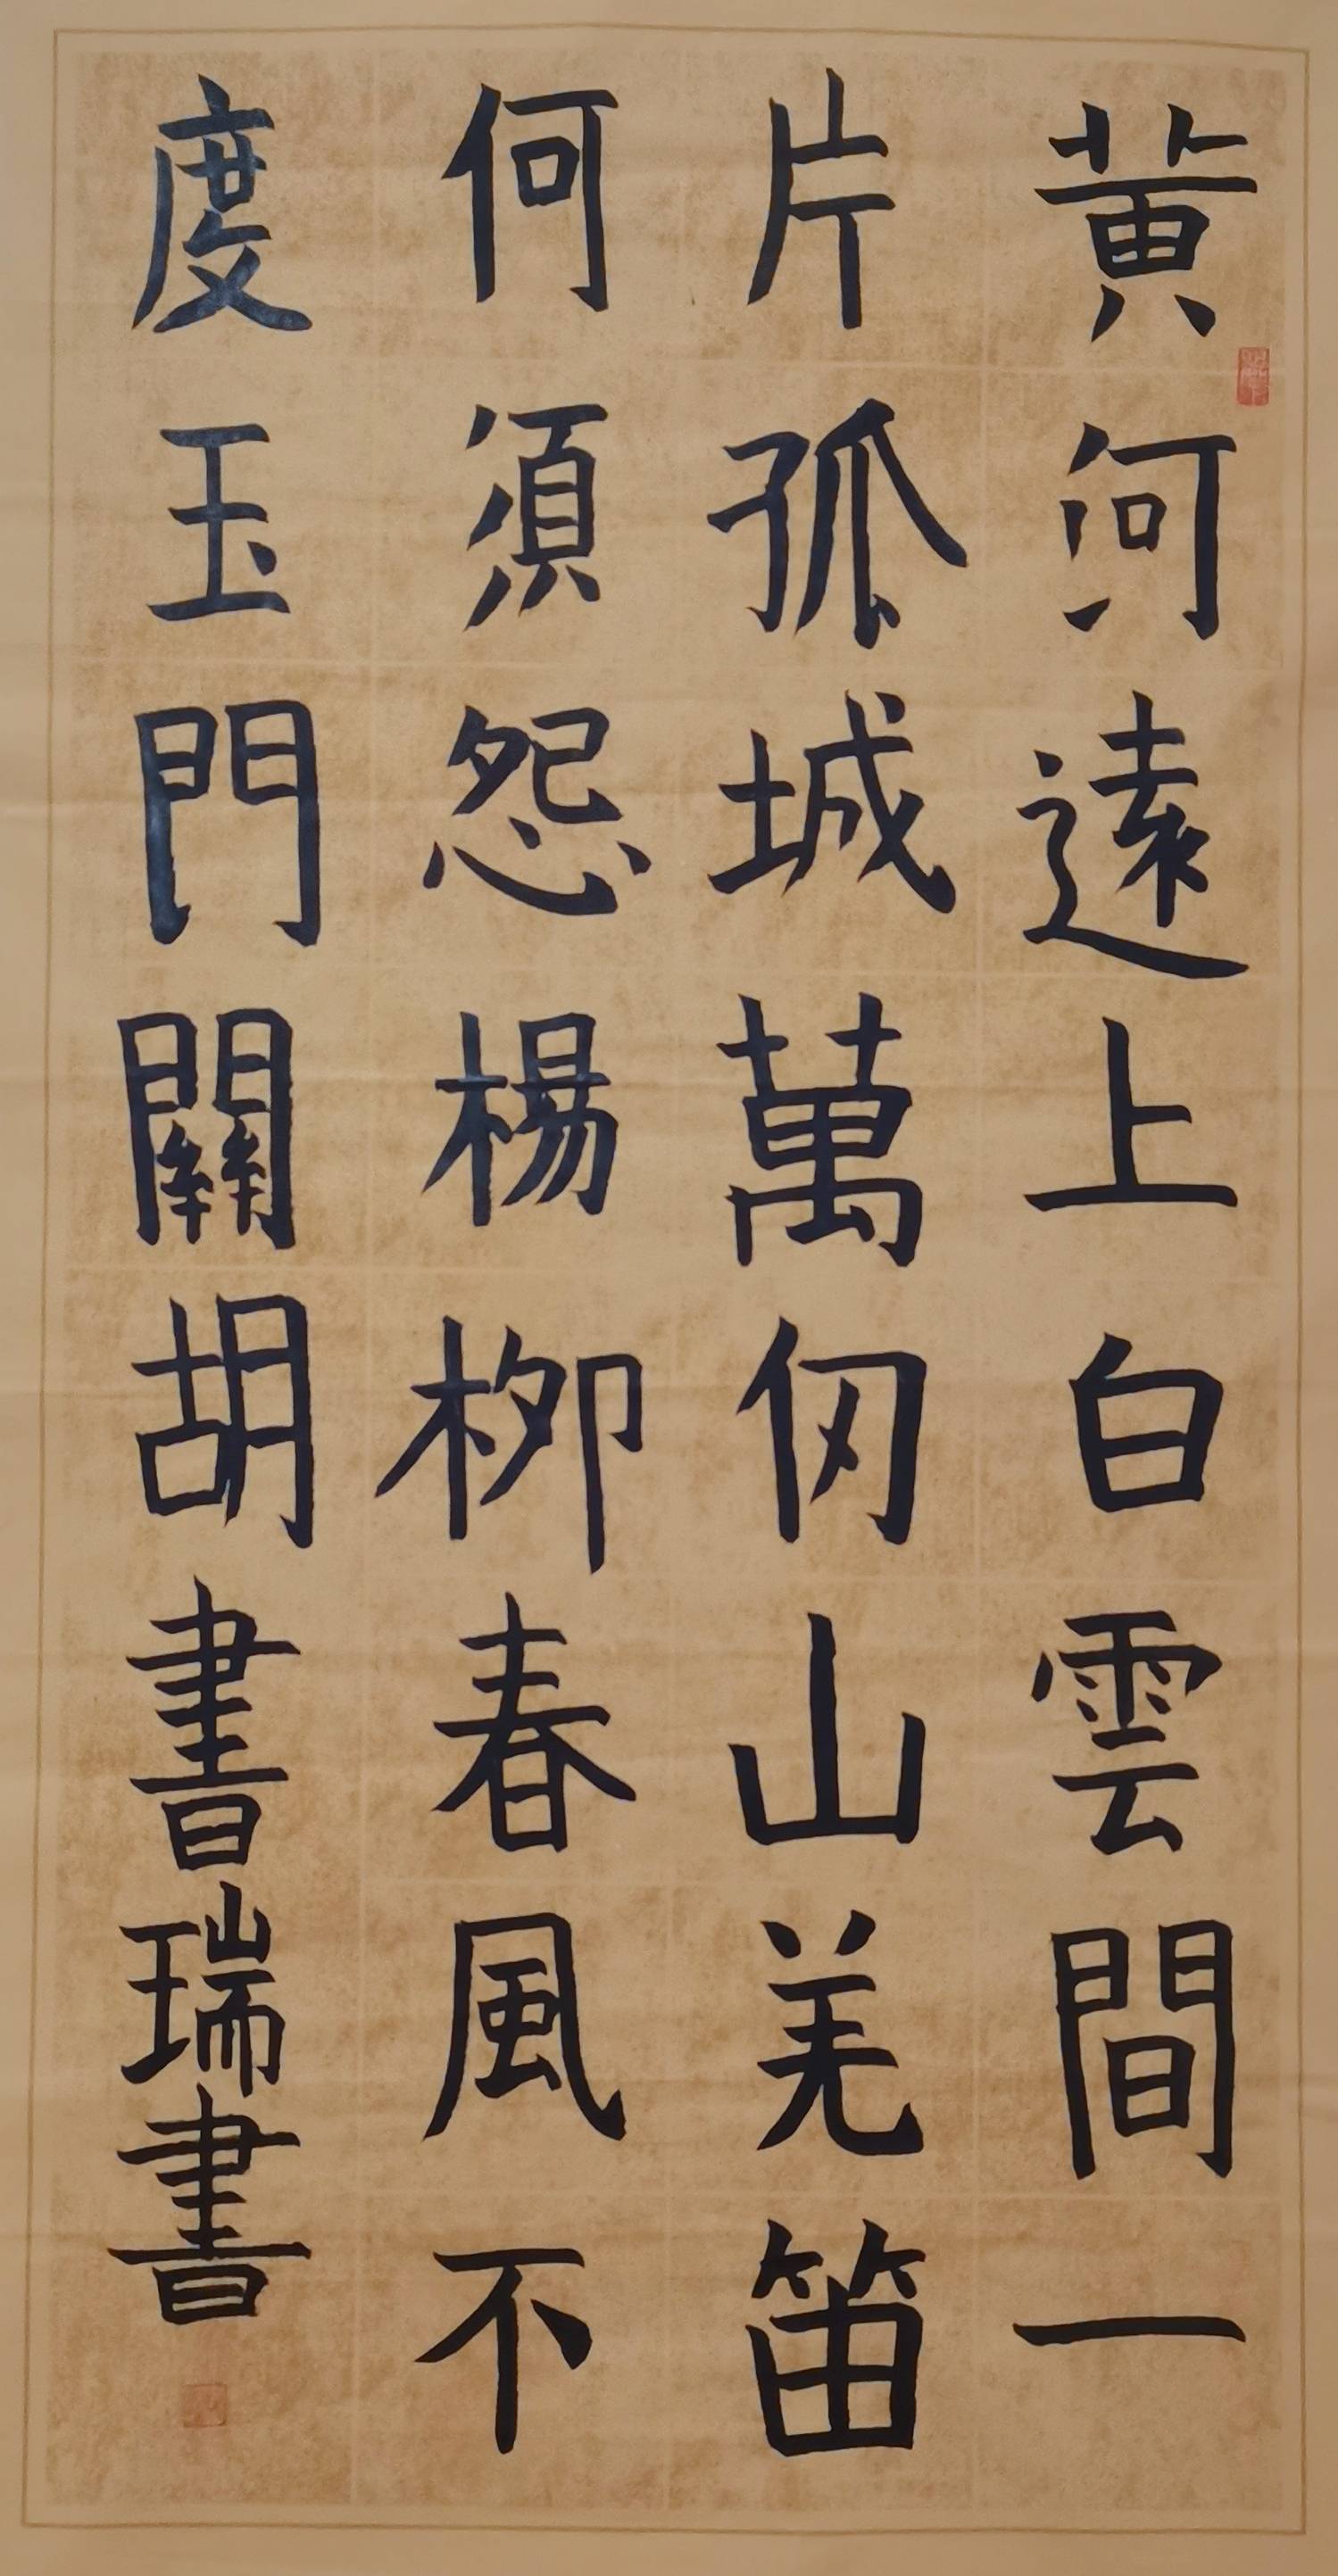 黄河遠上白雲間一
片孤城萬仞山羌笛
何須怨楊柳春風不
度玉門關胡書瑞書